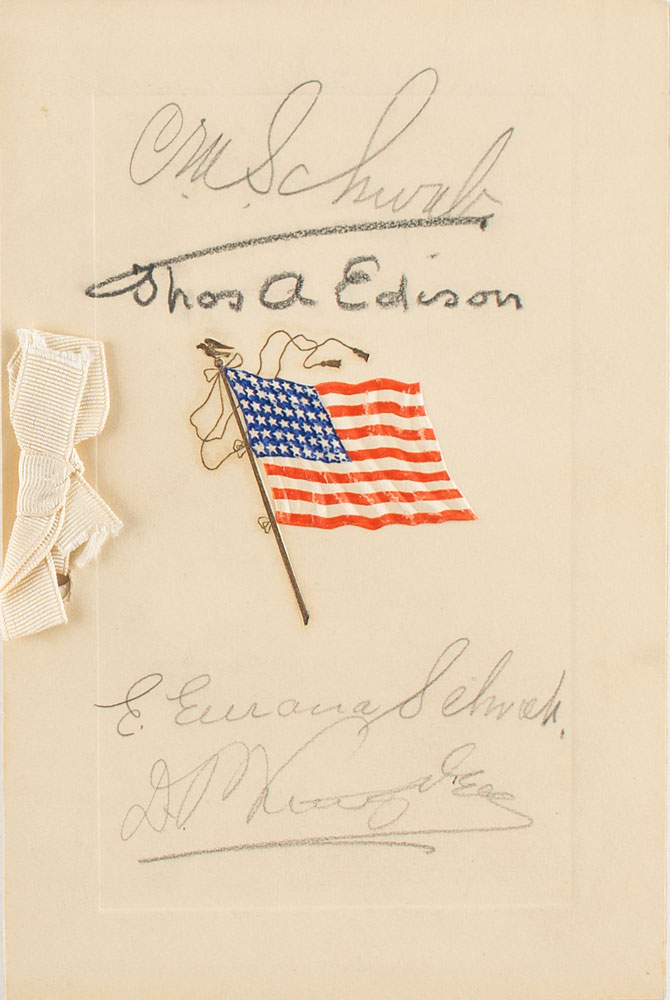 C.M. Schwab
Thos A Edison
E. Eurana Schwab.
D P